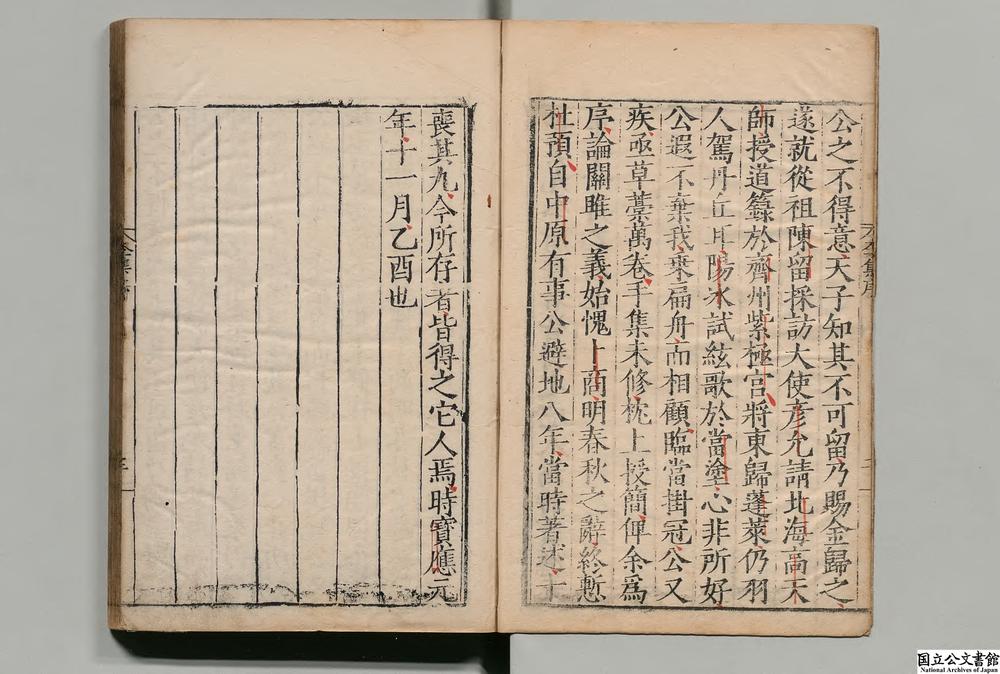 公之不得意天子知其不可留乃賜金歸之
遂就從祖陳留採訪大使彦允請北海高天
師授道籙於齊州紫極宮將東歸蓬萊仍羽
人駕丹丘耳陽氷試絃歌於當塗心非所好
公遐不棄我乗扁舟而相顧臨當掛冠公又
疾亟草藁萬卷手集未修枕上授簡俾余爲
序論關雎之義始愧卜商明春秋之辭終慙
杜預自中原有事公避地八年當時著述十
喪其九今所存者皆得之它人焉時寶應元
年十一月乙酉也
國立公文書館
National Archives of Japan